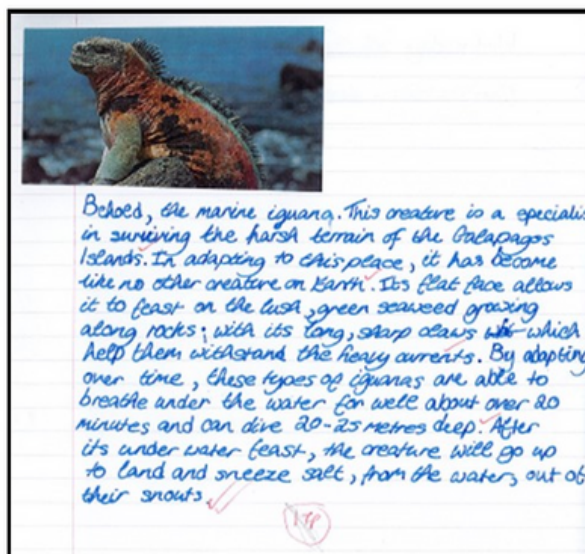 Behold, the marine iguana. This creature is a specialis
in surviving the harsh terrain of the Galapagos
Islands. In adapting to this place, it has become
like no other creature on Earth. Its flat face allows
it to feast on the lush, green seaweed growing
along rocks; with its long, sharp claws which
help them withstand the heavy currents. By adapting
over time, these types of iguanas are able to
breathe under the water for well about over 20
minutes and can dive 20-25 metres deep. After
its under water feast, the creature will go up
to land and sneeze salt, from the water, out of
their snouts.